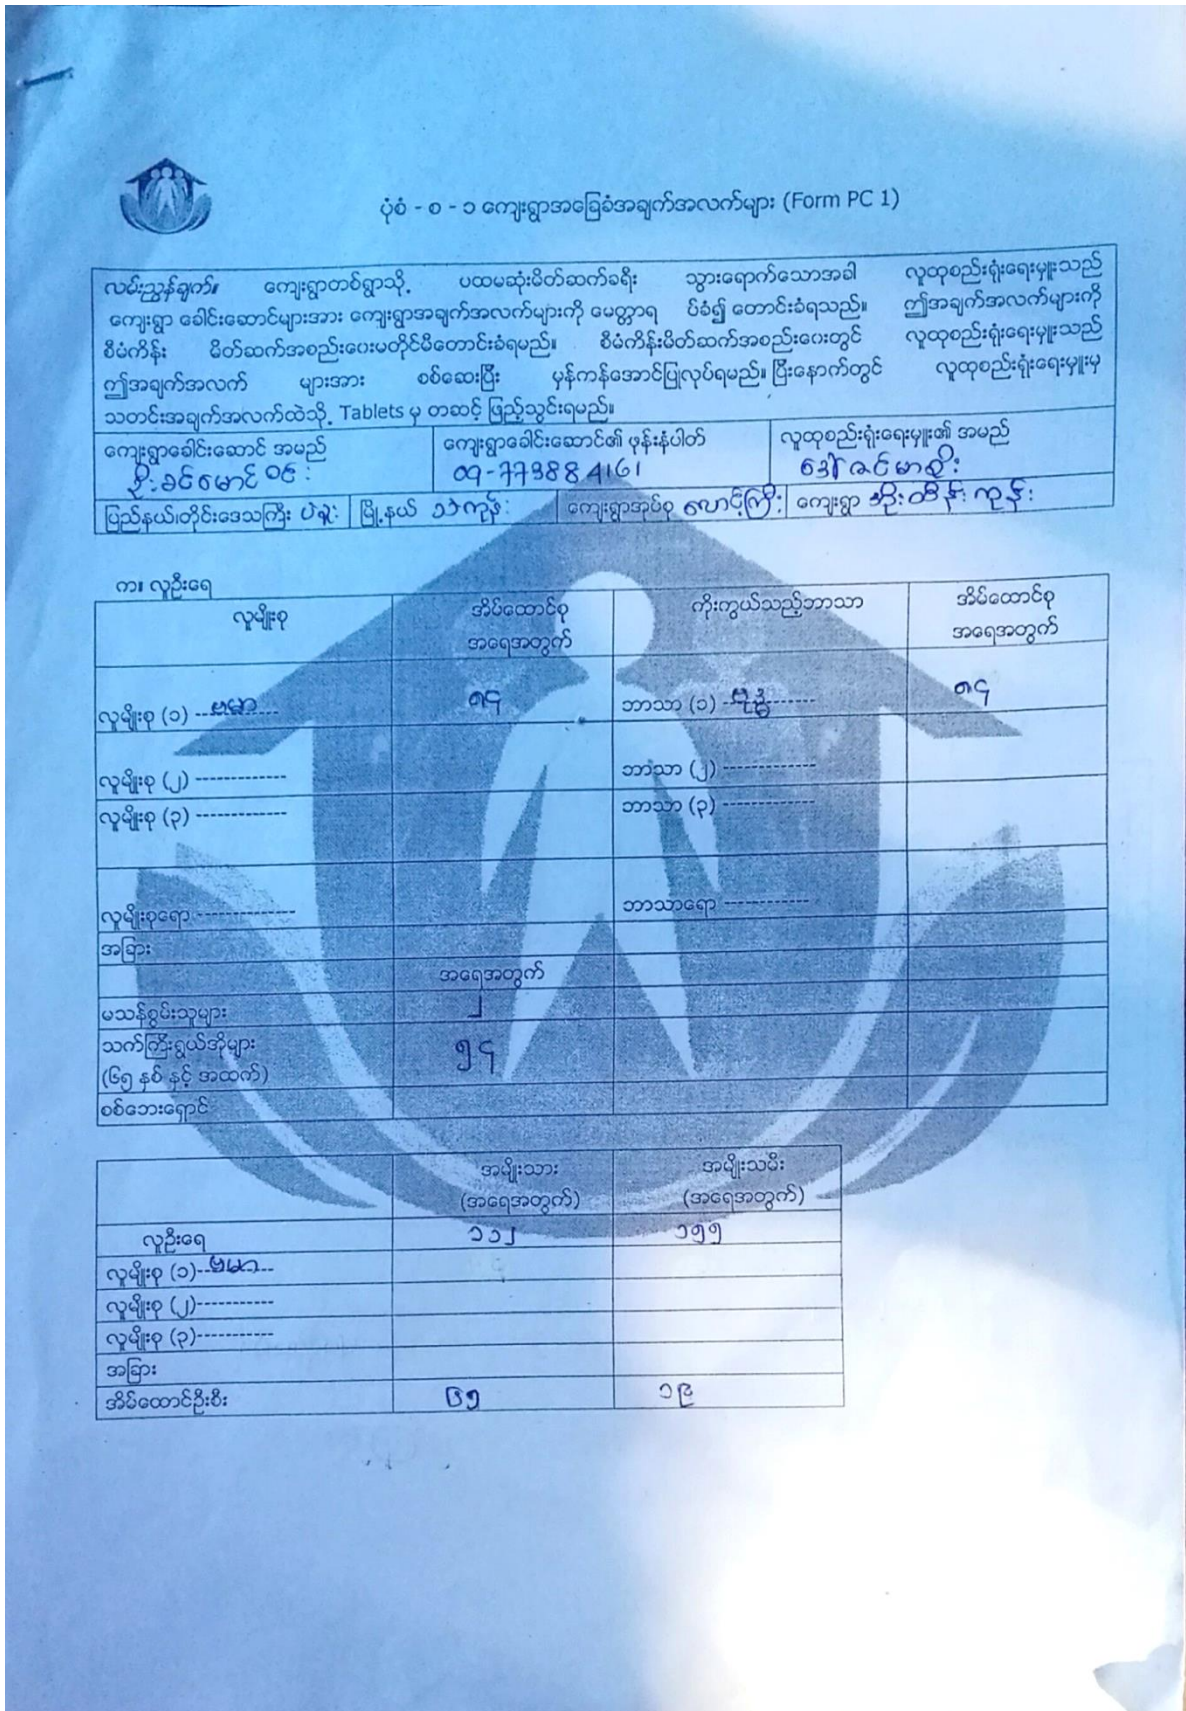 ပုံစံ - စ - ၁ ကျေးရွာအခြေခံအချက်အလက်များ (Form PC 1)
လမ်းညွှန်ချက်။ ကျေးရွာတစ်ရွာသို့ ပထမဆုံးမိတ်ဆက်ခရီး သွားရောက်သောအခါ လူထုစည်းရုံးရေးမှူးသည်
ကျေးရွာ ခေါင်းဆောင်များအား ကျေးရွာအချက်အလက်များကို မေတ္တာရ ပ်ခံ၍ တောင်းခံရသည်။ ဤအချက်အလက်များကို
စီမံကိန်း မိတ်ဆက်အစည်းဝေးမတိုင်မီတောင်းခံရမည်။ စီမံကိန်းမိတ်ဆက်အစည်းဝေးတွင် လူထုစည်းရုံးရေးမှူးသည်
ဤအချက်အလက် များအား စစ်ဆေးပြီး မှန်ကန်အောင်ပြုလုပ်ရမည်။ ပြီးနောက်တွင် လူထုစည်းရုံးရေးမှူးမှ
သတင်းအချက်အလက်ထဲသို့ Tablets မှ တဆင့် ဖြည့်သွင်းရမည်။
ကျေးရွာခေါင်းဆောင် အမည် ကျေးရွာခေါင်းဆောင်၏ ဖုန်းနံပါတ် လူထုစည်းရုံးရေးမှူး၏ အမည်
ဦးခင်မောင်ဝင်း 09-773884161 ဒေါ်ဇင်မာဦး
ပြည်နယ်၊တိုင်းဒေသကြီး ပဲခူး မြို့နယ် သဲကုန်း ကျေးရွာအုပ်စု လောင့်ကြီး ကျေးရွာ အိုးထိန်းကုန်း
က။ လူဦးရေ
လူမျိုးစု အိမ်ထောင်စု ကိုးကွယ်သည့်ဘာသာ အိမ်ထောင်စု
အရေအတွက် အရေအတွက်
လူမျိုးစု (၁) --ဗမာ-- ၈၄ ဘာသာ (၁) --ဗုဒ္ဓ-- ၈၄
လူမျိုးစု (၂) ------------- ဘာသာ (၂) -------------
လူမျိုးစု (၃) ------------- ဘာသာ (၃) -------------
လူမျိုးစုရော -------------- ဘာသာရော ------------
အခြား
အရေအတွက်
မသန်စွမ်းသူများ ၂
သက်ကြီးရွယ်အိုများ ၅၄
(၆၅ နှစ် နှင့် အထက်)
စစ်ဘေးရှောင်
အမျိုးသား အမျိုးသမီး
(အရေအတွက်) (အရေအတွက်)
လူဦးရေ ၁၁၂ ၁၅၅
လူမျိုးစု (၁)--ဗမာ--
လူမျိုးစု (၂)-----------
လူမျိုးစု (၃)-----------
အခြား
အိမ်ထောင်ဦးစီး ၆၅ ၁၉